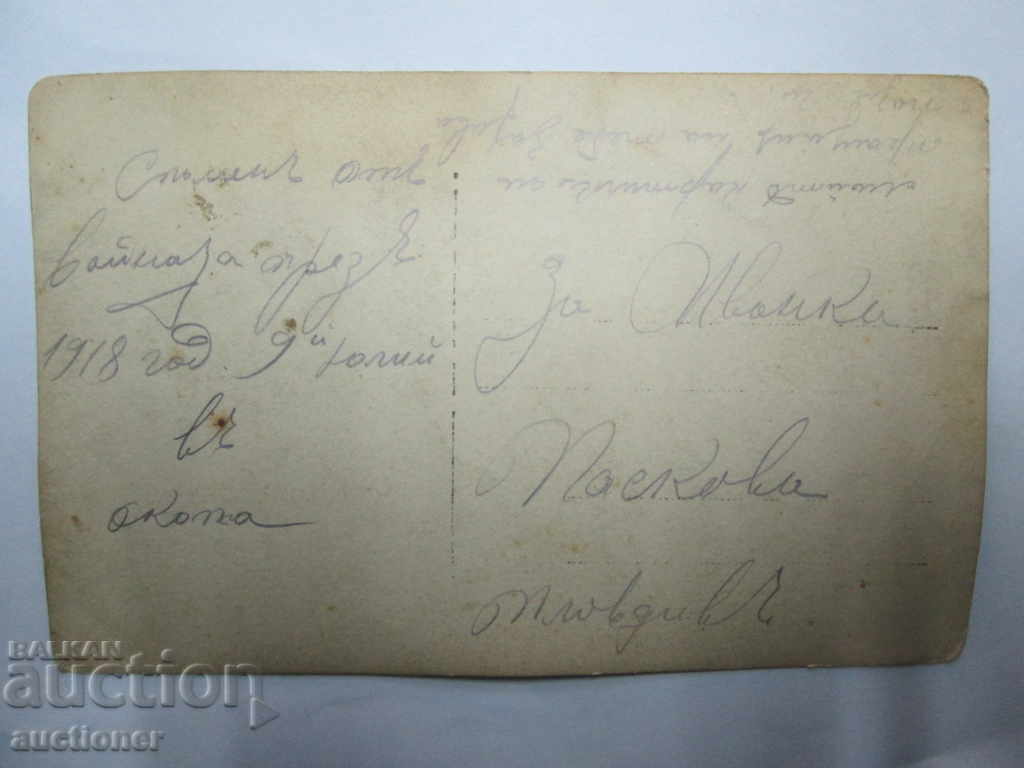 Споменъ отъ
войната презъ
1918 год. 9й Юлий
въ
окопа
За Иванка
Паскова
Пловдивъ
на тебе
BALKAN
auction
auctioner